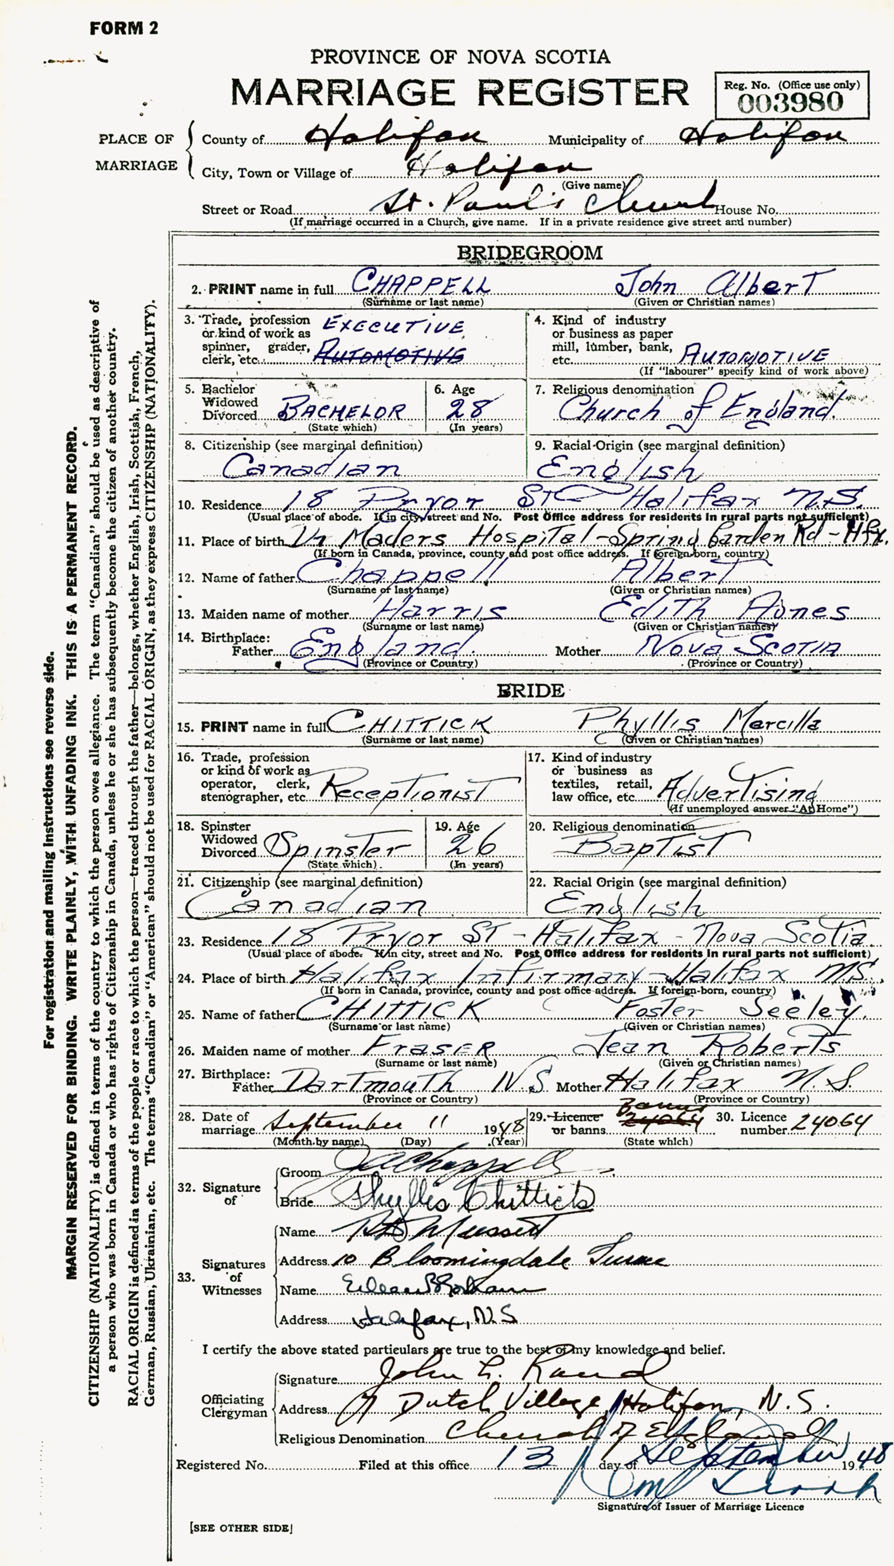 FORM 2
PROVINCE OF NOVA SCOTIA
MARRIAGE REGISTER
Reg. No. (Office use only)
003980
PLACE OF MARRIAGE
County of Halifax Municipality of Halifax
City, Town or Village of Halifax
(Give name)
Street or Road St. Paul's Church House No.
(If marriage occurred in a Church, give name. If in a private residence give street and number)
BRIDEGROOM
2. PRINT name in full CHAPPELL John Albert
(Surname or last name) (Given or Christian names)
3. Trade, profession or kind of work as spinner, grader, clerk, etc. EXECUTIVE AUTOMOTIVE
4. Kind of industry or business as paper mill, lumber, bank, etc. AUTOMOTIVE
(If "labourer" specify kind of work above)
5. Bachelor Widowed Divorced BACHELOR
(State which)
6. Age 28
(In years)
7. Religious denomination Church of England.
8. Citizenship (see marginal definition) Canadian
9. Racial Origin (see marginal definition) English
10. Residence 18 Pryor St Halifax N.S.
(Usual place of abode. If in city, street and No. Post Office address for residents in rural parts not sufficient)
11. Place of birth Hospital - Spring Garden Rd - Hfx.
(If born in Canada, province, county and post office address. If foreign-born, country)
12. Name of father Chappell Albert
(Surname or last name) (Given or Christian names)
13. Maiden name of mother Harris Edith Agnes
(Surname or last name) (Given or Christian names)
14. Birthplace: Father England. Mother Nova Scotia
(Province or Country) (Province or Country)
BRIDE
15. PRINT name in full CHITTICK Phyllis Marcilla
(Surname or last name) (Given or Christian names)
16. Trade, profession or kind of work as operator, clerk, stenographer, etc. Receptionist
17. Kind of industry or business as textiles, retail, law office, etc. Advertising
(If unemployed answer "At Home")
18. Spinster Widowed Divorced Spinster
(State which)
19. Age 26
(In years)
20. Religious denomination Baptist
21. Citizenship (see marginal definition) Canadian
22. Racial Origin (see marginal definition) English
23. Residence 18 Pryor St - Halifax - Nova Scotia
(Usual place of abode. If in city, street and No. Post Office address for residents in rural parts not sufficient)
24. Place of birth Halifax Infirmary - Halifax N.S.
(If born in Canada, province, county and post office address. If foreign-born, country)
25. Name of father CHITTICK Foster Seeley.
(Surname or last name) (Given or Christian names)
26. Maiden name of mother FRASER Jean Roberts
(Surname or last name) (Given or Christian names)
27. Birthplace: Father Dartmouth N.S Mother Halifax N.S.
(Province or Country) (Province or Country)
28. Date of marriage September 11 1948
(Month by name) (Day) (Year)
29. Licence or banns Banns 24064
(State which)
30. Licence number 24064
32. Signature of
Groom JAChappell
Bride Phyllis Chittick
33. Signatures of Witnesses
Name
Address 10 Bloomingdale
Name Eileen
Address Halifax, N.S
I certify the above stated particulars are true to the best of my knowledge and belief.
Officiating Clergyman
Signature John L.
Address Dutch Village, Halifax, N.S.
Religious Denomination Church of England
Registered No. Filed at this office 13 day of September 1948
Signature of Issuer of Marriage Licence
[SEE OTHER SIDE]
For registration and mailing instructions see reverse side.
MARGIN RESERVED FOR BINDING. WRITE PLAINLY, WITH UNFADING INK. THIS IS A PERMANENT RECORD.
CITIZENSHIP (NATIONALITY) is defined in terms of the country to which the person owes allegiance. The term "Canadian" should be used as descriptive of
a person who was born in Canada or who has rights of Citizenship in Canada, unless he or she has subsequently become the citizen of another country.
RACIAL ORIGIN is defined in terms of the people or race to which the person—traced through the father—belongs, whether English, Irish, Scottish, French,
German, Russian, Ukrainian, etc. The terms "Canadian" or "American" should not be used for RACIAL ORIGIN, as they express CITIZENSHIP (NATIONALITY).